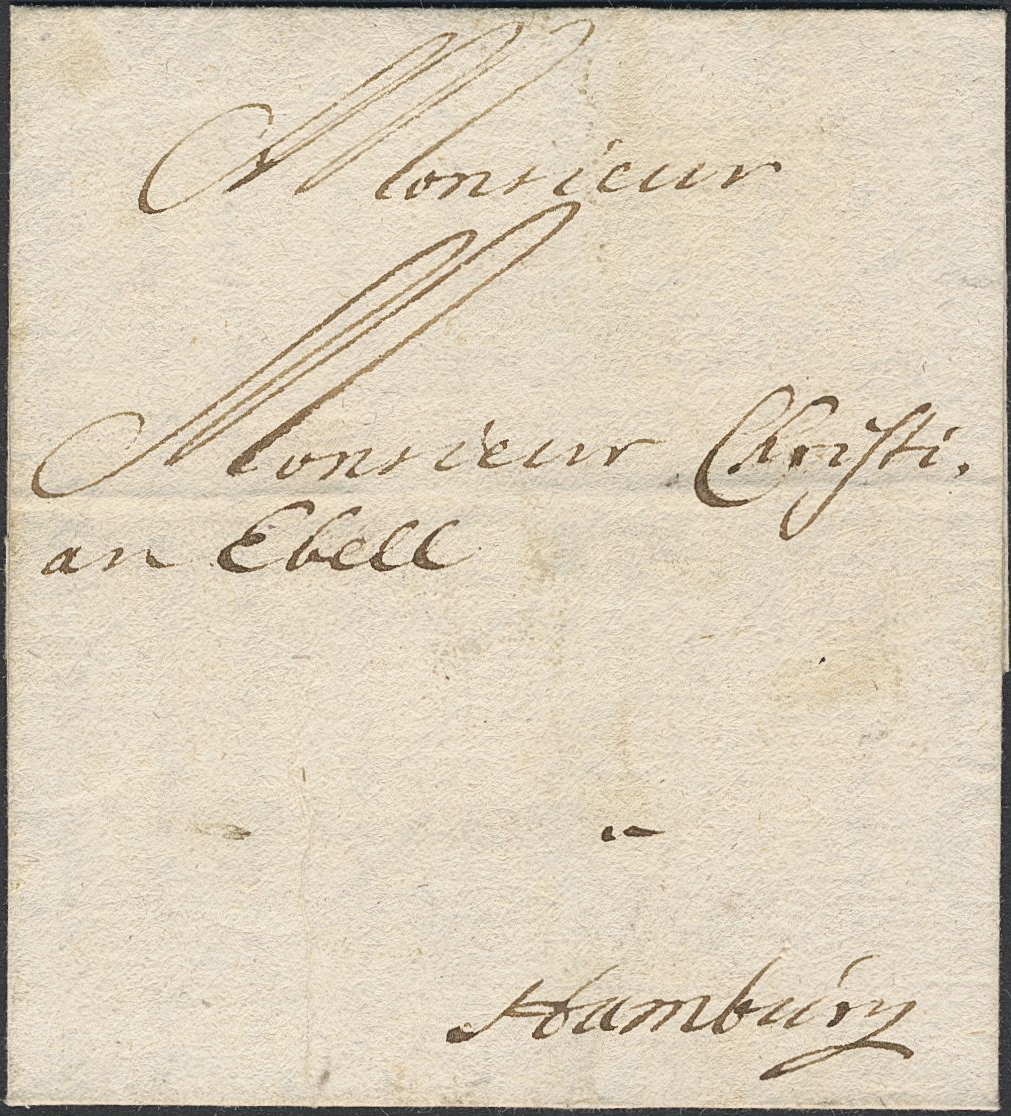 Monsieur
Monsieur Christi.
an Ebell
Hamburg